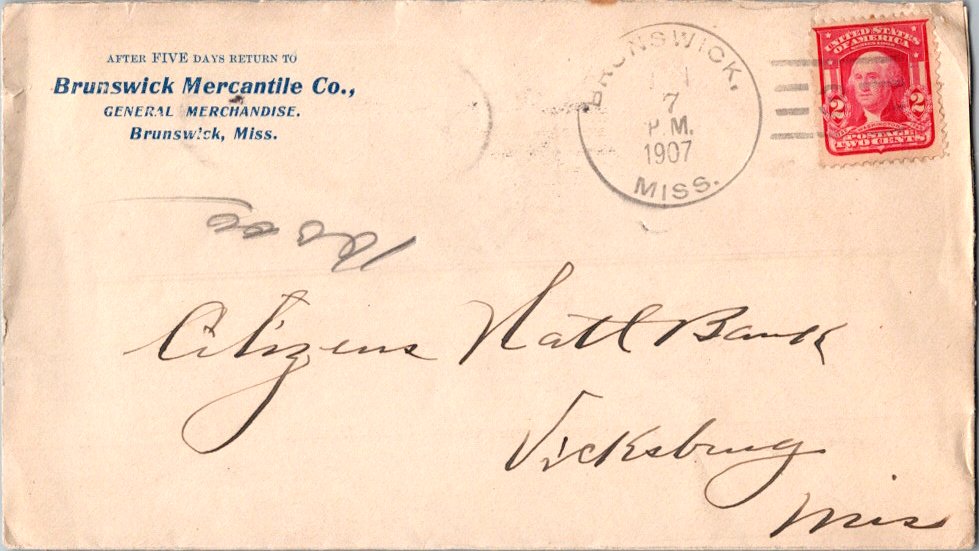 AFTER FIVE DAYS RETURN TO
Brunswick Mercantile Co.,
GENERAL MERCHANDISE.
Brunswick, Miss.
BRUNSWICK,
7
P.M.
1907
MISS.
UNITED STATES
OF AMERICA
2 2
POSTAGE
TWO CENTS
Citizens Natl Bank
Vicksburg
Mis